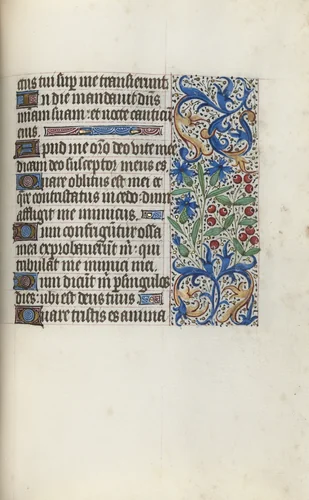 ctus tui sup me transierunt.
In die mandauit dns
miam suam: et nocte canticū
eius.
Apud me orō deo vite mee
dicam deo susceptor meus es.
Quare oblitus es mei et
qre contristatus incedo: dum
affligit me inimicus.
Dum confringūtur ossa
mea exprobauerūt m: qui
tribulāt me inimici mei.
Dum dicūt m p singulos
dies: ubi est deus tuus.
Quare tristis es anima